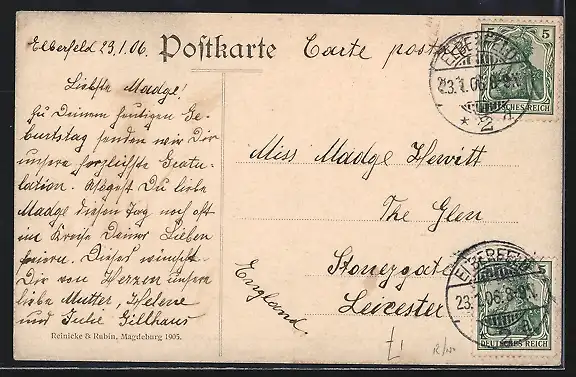 Elberfeld 23.1.06.
Postkarte
Carte postale
Liebste Madge!
Zu Deinem heutigen Ge-
burtstag senden wir Dir
unsere herzlichste Gratu-
lation. Mögest Du liebe
Madge diesen Tag noch oft
im Kreise Deiner Lieben
feiern. Dieses wünscht
Dir von Herzen unsere
liebe Mutter, Helene
und Julie Gillhaus
Reinicke & Rubin, Magdeburg 1905.
Miss Madge Hewitt
The Glen
Stoneygate
Leicester
England.
ELBERFELD
23.1.06. 8-9N.
* 2 n
5
DEUTSCHES REICH
ELBERFELD
23.1.06. 8-9N.
5
DEUTSCHES REICH